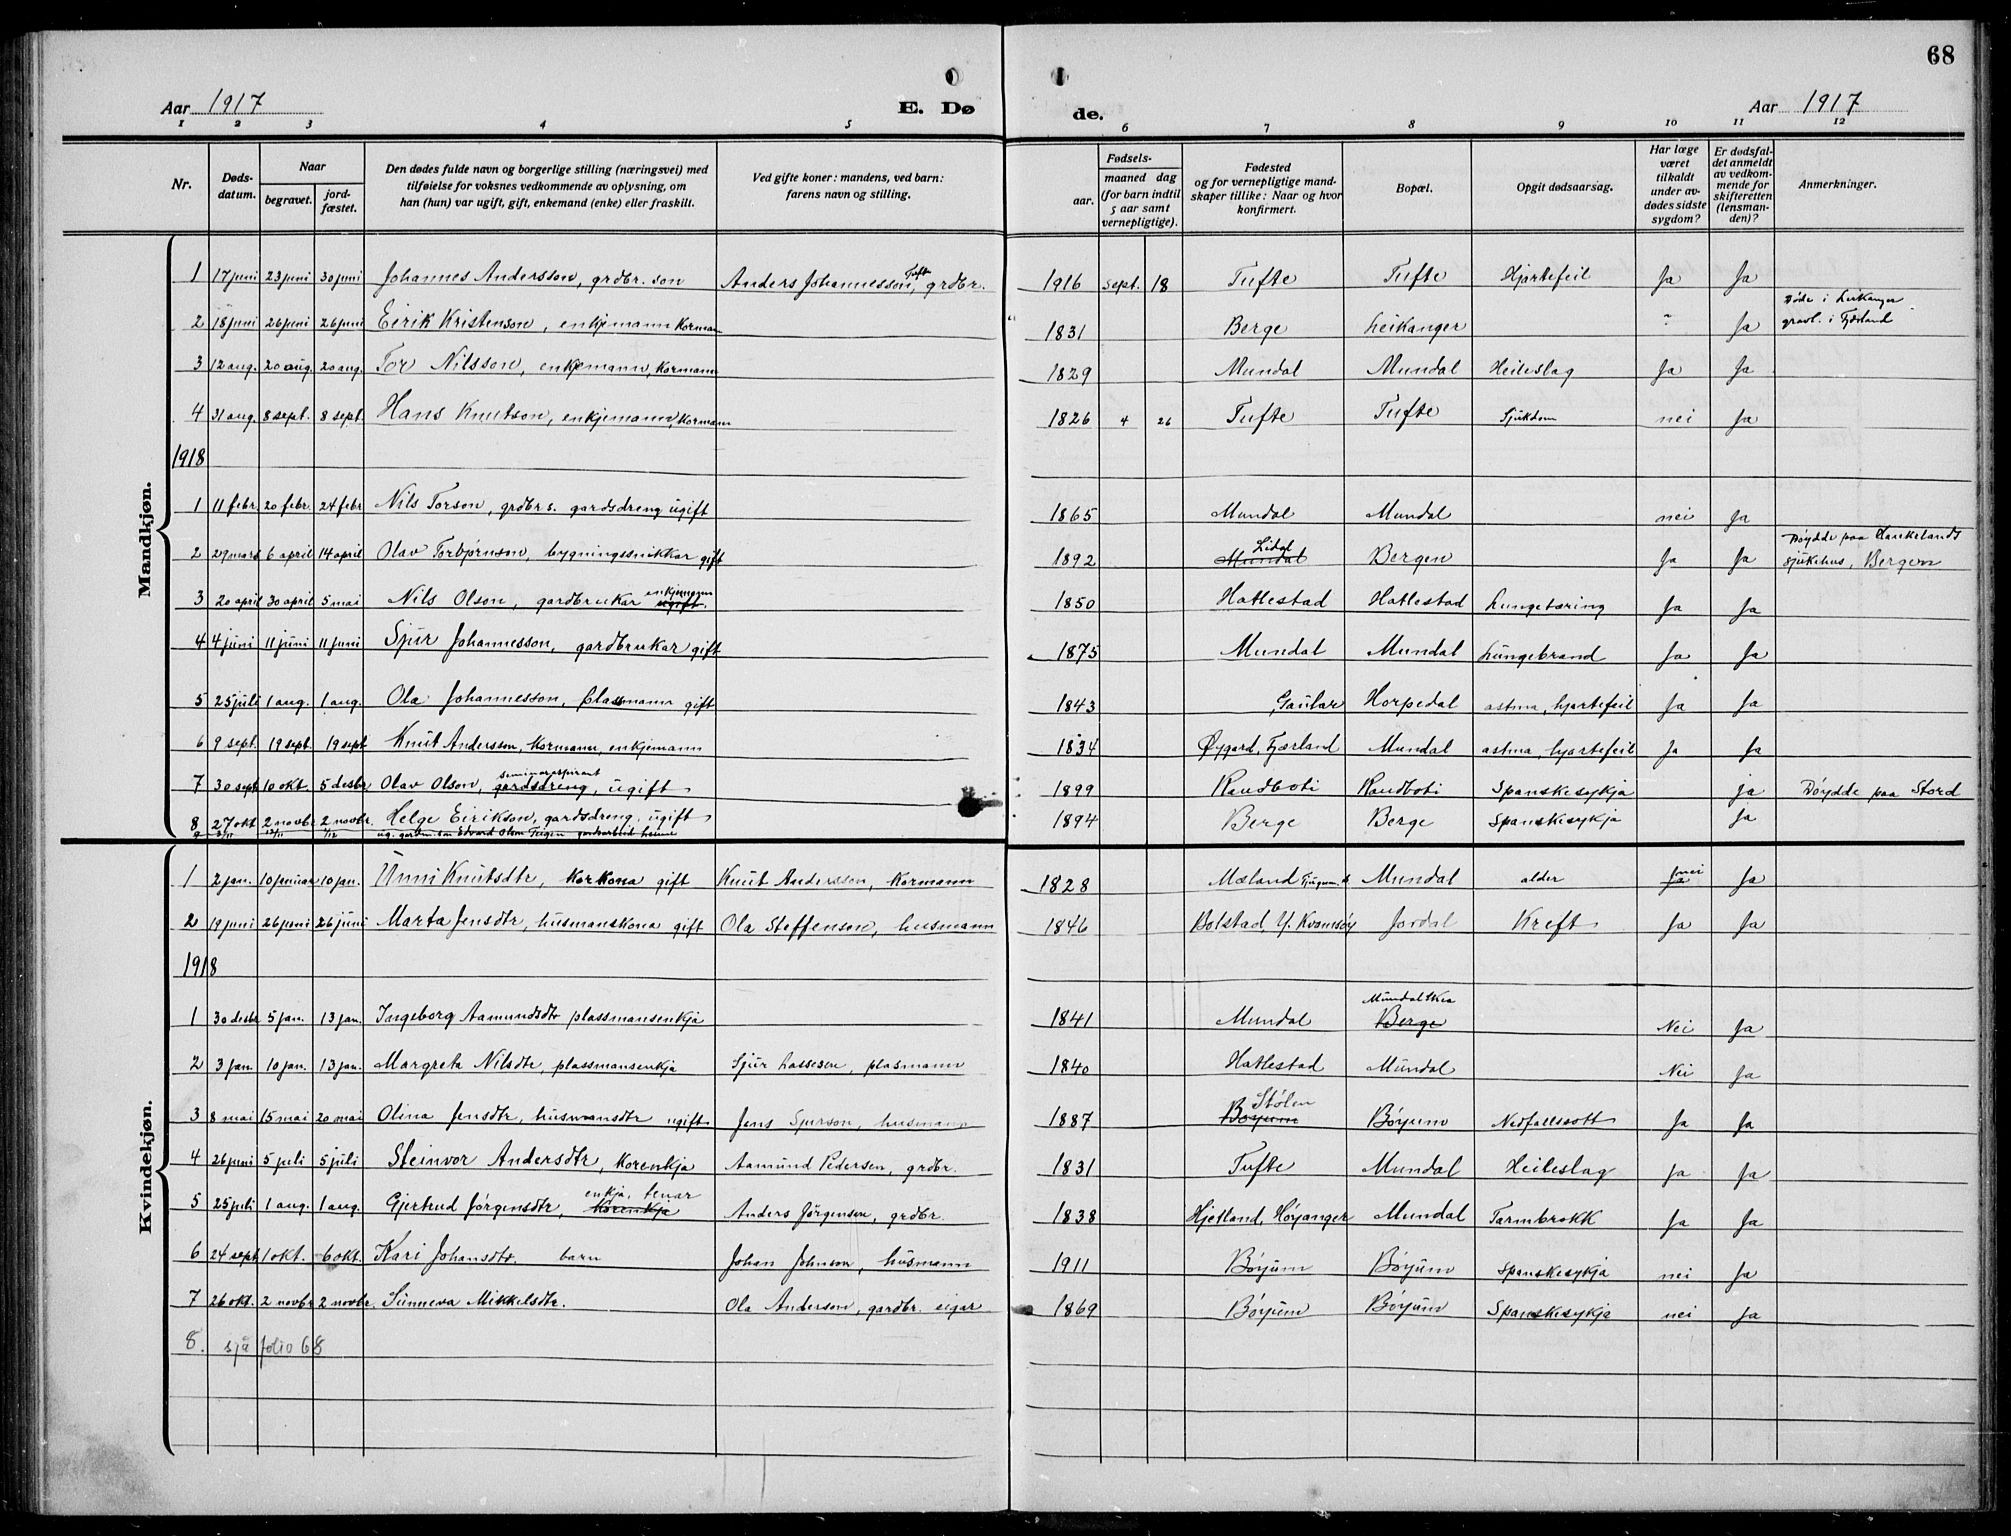 68
Aar 1917 E. Dø de. Aar 1917
1 2 3 4 5 6 7 8 9 10 11 12
Nr. Døds-datum. Naar begravet. jord-fæstet. Den dødes fulde navn og borgerlige stilling (næringsvei) med tilføielse for voksnes vedkommende av oplysning, om han (hun) var ugift, gift, enkemand (enke) eller fraskilt. Ved gifte koner: mandens, ved barn: farens navn og stilling. Fødsels- aar. maaned dag (for barn indtil 5 aar samt vernepligtige). Fødested og for vernepligtige mand-skaper tillike: Naar og hvor konfirmert. Bopæl. Opgit dødsaarsag. Har læge været tilkaldt under av-dødes sidste sygdom? Er dødsfal-det anmeldt av vedkom-mende for skifteretten (lensman-den)? Anmerkninger.
Mandkjøn.
1 17 juni 23 juni 30 juni Johannes Andersson, grdbr. son Anders Johannesson, Tufte grdbr. 1916 sept. 18 Tufte Tufte Hjartefeil Ja Ja
2 18 juni 26 juni 26 juni Eirik Kristenson, enkjemann Kormann 1831 Berge Leikanger ~ Ja Døde i Leikanger gravl. i Fjærland
3 12 aug. 20 aug. 20 aug. Tor Nilsson, enkjemann, Kormann 1829 Mundal Mundal Heileslag Ja Ja
4 31 aug. 8 sept. 8 sept. Hans Knutson, enkjemann, Kormann 1826 4 26 Tufte Tufte Sjukdom nei Ja
1918
1 11 febr. 20 febr. 24 febr Nils Torson, grdbrs. gardsdreng ugift 1865 Mundal Mundal nei Ja
2 29 mars 6 april 14 april Olav Torbjørnson, bygningssnikkar gift 1892 Mundal Lidal Bergen Ja Ja Døydde paa Haukelands sjukehus, Bergen
3 20 april 30 april 5 mai Nils Olson, gardbrukar ugift. enkjemann 1850 Hatlestad Hatlestad Lungetæring Ja Ja
4 4 juni 11 juni 11 juni Sjur Johannesson, gardbrukar gift 1875 Mundal Mundal Lungebrand Ja Ja
5 25 juli 1 aug. 1 aug. Ola Johannesson, Plassmann gift 1843 Gaular Horpedal astma, hjartefeil Ja Ja
6 9 sept. 19 sept. 19 sept Knut Andersson, Kormann, enkjemann 1834 Øygard, Fjærland Mundal astma, hjartefeil Ja Ja
7 30 sept 10 okt. 5 desbr Olav Olson, gardsdreng, seminaraspirant ugift 1899 Raudboti Raudboti Spanskesykja ja Døydde paa Stord
8 27 okt 2 novbr 2 novbr. Helge Eirikson, gardsdreng, ugift 1894 Berge Berge Spanskesykja ja
9
Kvindekjøn.
1 2 jan. 10 januar 10 jan. Unni Knutsdtr, Korkona gift Knut Andersson, Kormann 1828 Mæland Mundal alder Ja nei Ja
2 19 juni 26 juni 26 juni Marta Jensdtr, husmanskona gift Ola Steffenson, husmann 1846 Bolstad, Y. Kvamsøy Jordal Kreft Ja Ja
1918
1 30 desbr 5 jan. 13 jan. Ingeborg Aamundsdtr plassmansenkja 1841 Mundal Berge Mundalskra Nei Ja
2 3 jan. 10 jan. 13 jan. Margreta Nilsdtr, plassmansenkja Sjur Lassesen, plasmann 1840 Hatlestad Mundal Nei Ja
3 8 mai 15 mai 20 mai Olina Jensdtr, husmansdtr ugift Jens Sjurson, husmann 1887 Bøyum Stølen Bøyum Nedfallssott Ja Ja
4 26 juni 5 juli 5 juli Steinvor Andersdtr, Korenkja Aamund Pedersen, grdbr. 1831 Tufte Mundal Heileslag Ja Ja
5 25 juli 1 aug. 1 aug. Gjertrud Jørgensdtr, Korenkja enkja, tenar Anders Jørgensen, grdbr. 1838 Hjetland, Høyanger Mundal Tarmbrokk Ja Ja
6 24 sept. 1 okt. 6 okt. Kari Johansdtr. barn Johan Johnson, husmann 1911 Bøyum Bøyum Spanskesykja nei Ja
7 26 okt. 2 novbr 2 novbr. Sunneva Mikkelsdtr. Ola Anderson, gardbr. eigar 1869 Bøyum Bøyum Spanskesykja nei Ja
8. sjå folio 68